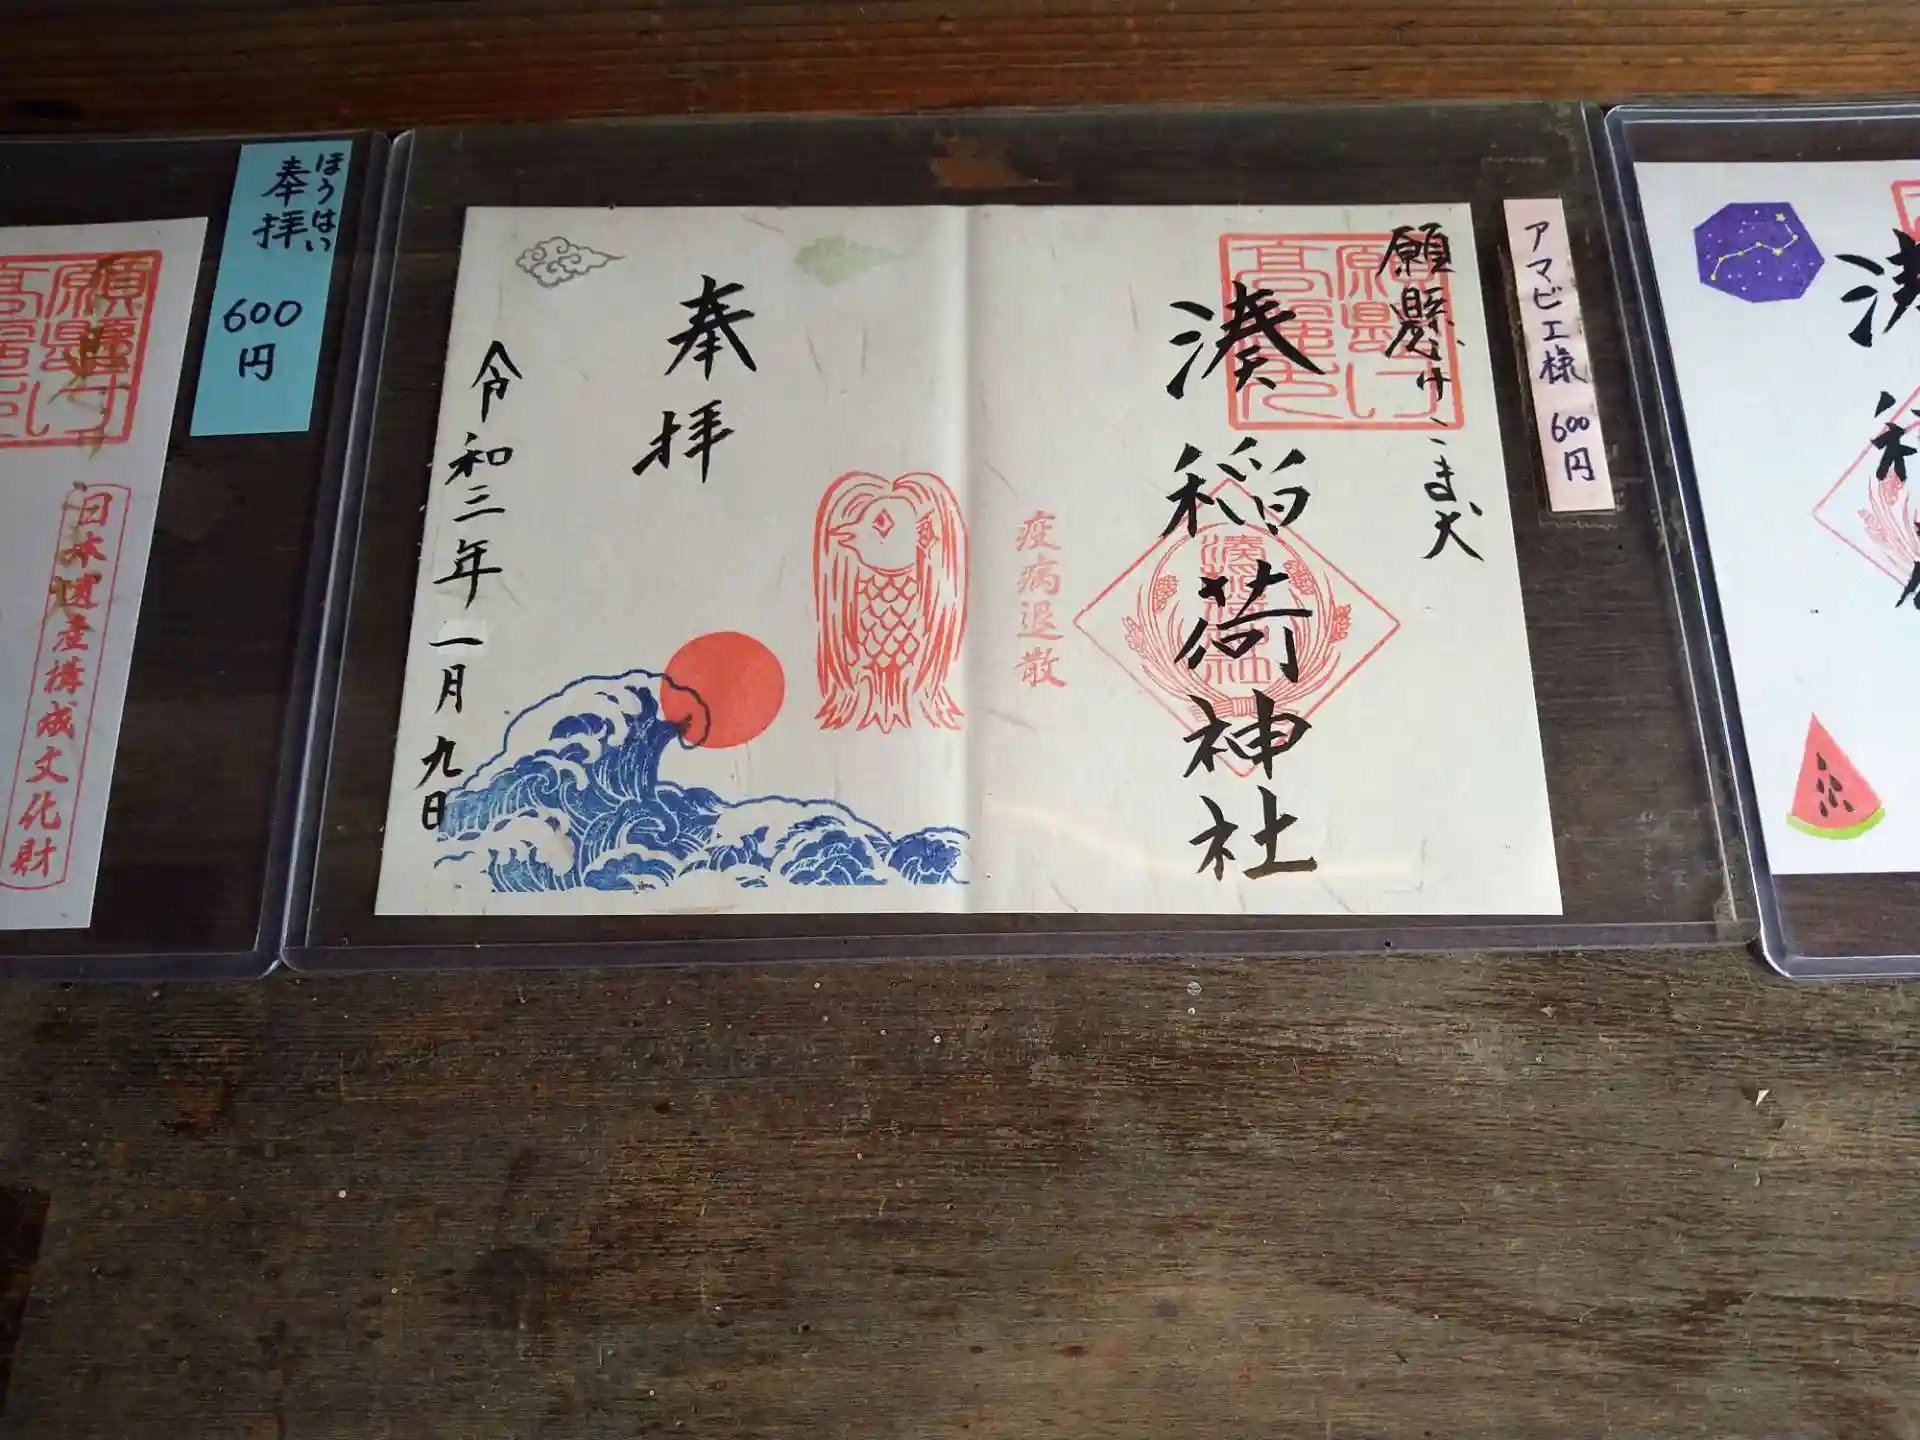 願懸け
日本遺産構成文化財
ほうはい
奉拝
600
円
願懸け こま犬
湊稲荷神社
疫病退散
奉拝
令和三年一月九日
アマビエ様 600円
湊稲荷